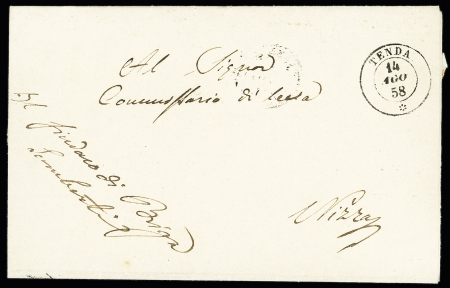 TENDA
14
AGO
58
Al Signor
Commissario di Leva
Nizza
Il Sindaco di Briga